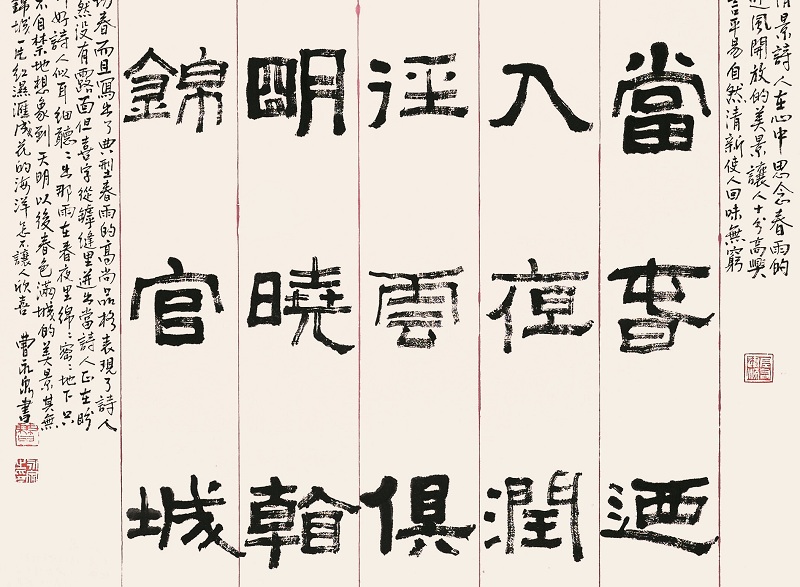 情景詩人在心中思念春雨的
風開放的美景讓人十分高興
言平易自然清新使人回味無窮
當春迺
入夜潤
徑雲俱
明曉看
錦官城
春而且寫出了典型春雨的高尚品格表現了詩人
然没有露面但喜字從罅缝里迸出當詩人正在盼
好詩人耳細聽聽出那雨在春夜里綿綿密密地下只
不自禁地想象到天明以後春色滿城的美景其無
錦城一片紅濕匯成花的海洋怎不讓人欣喜 曹永泉書